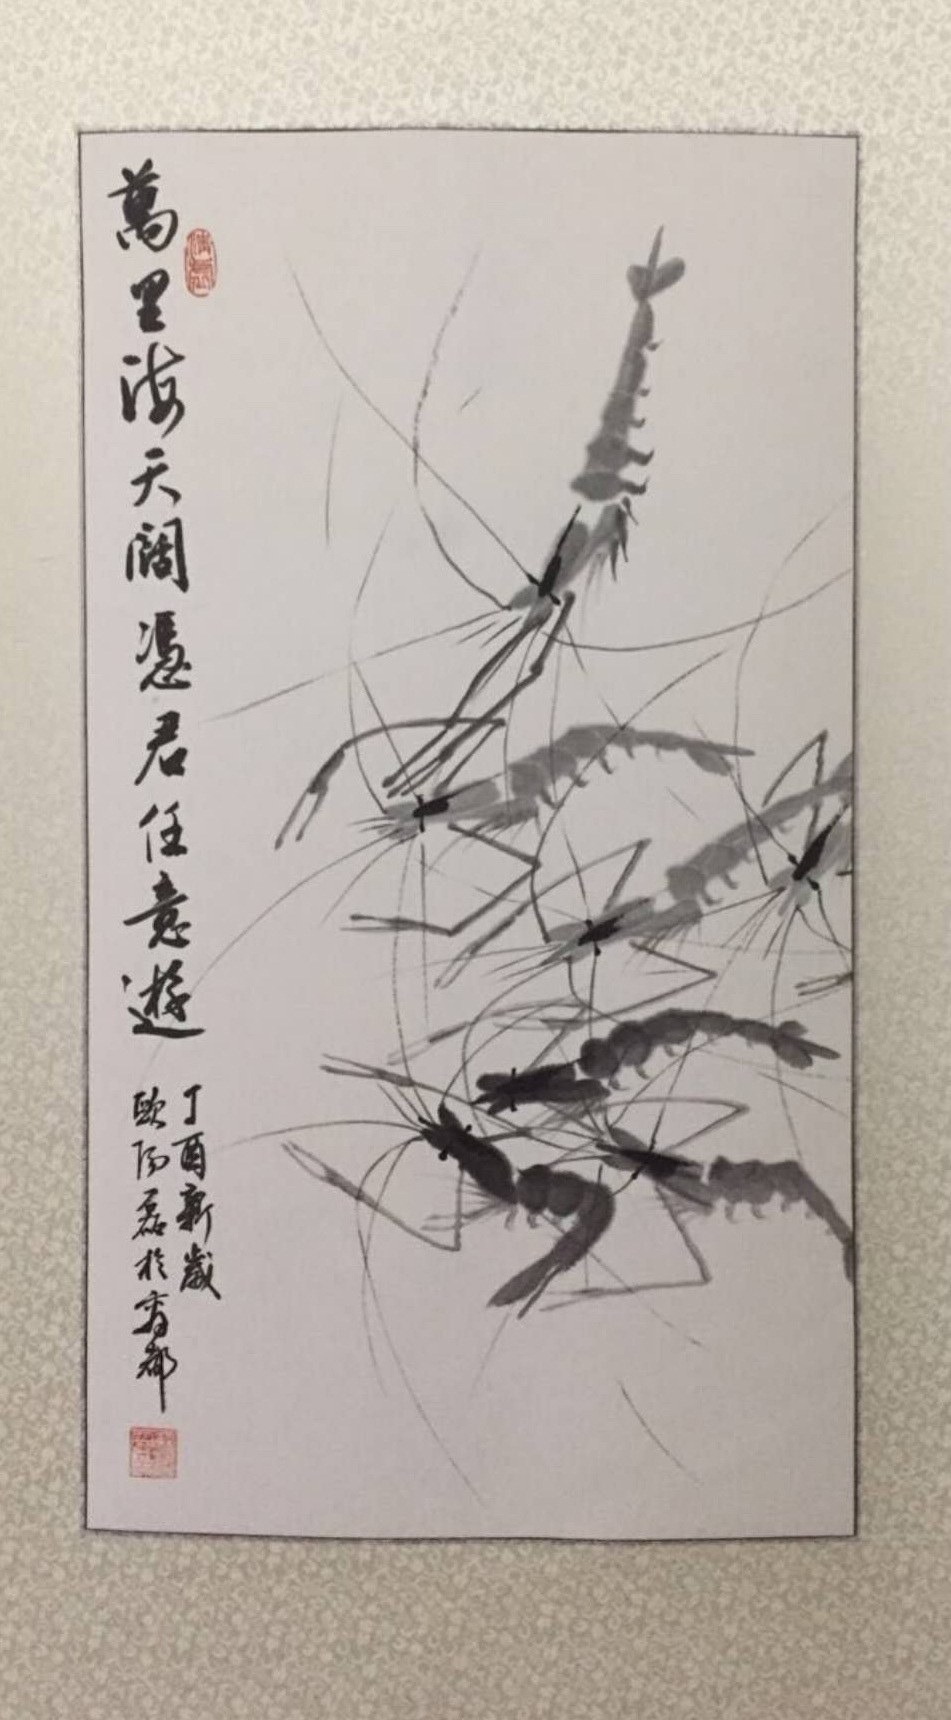 萬里海天闊憑君任意遊
丁酉新歲
歐陽磊於商都